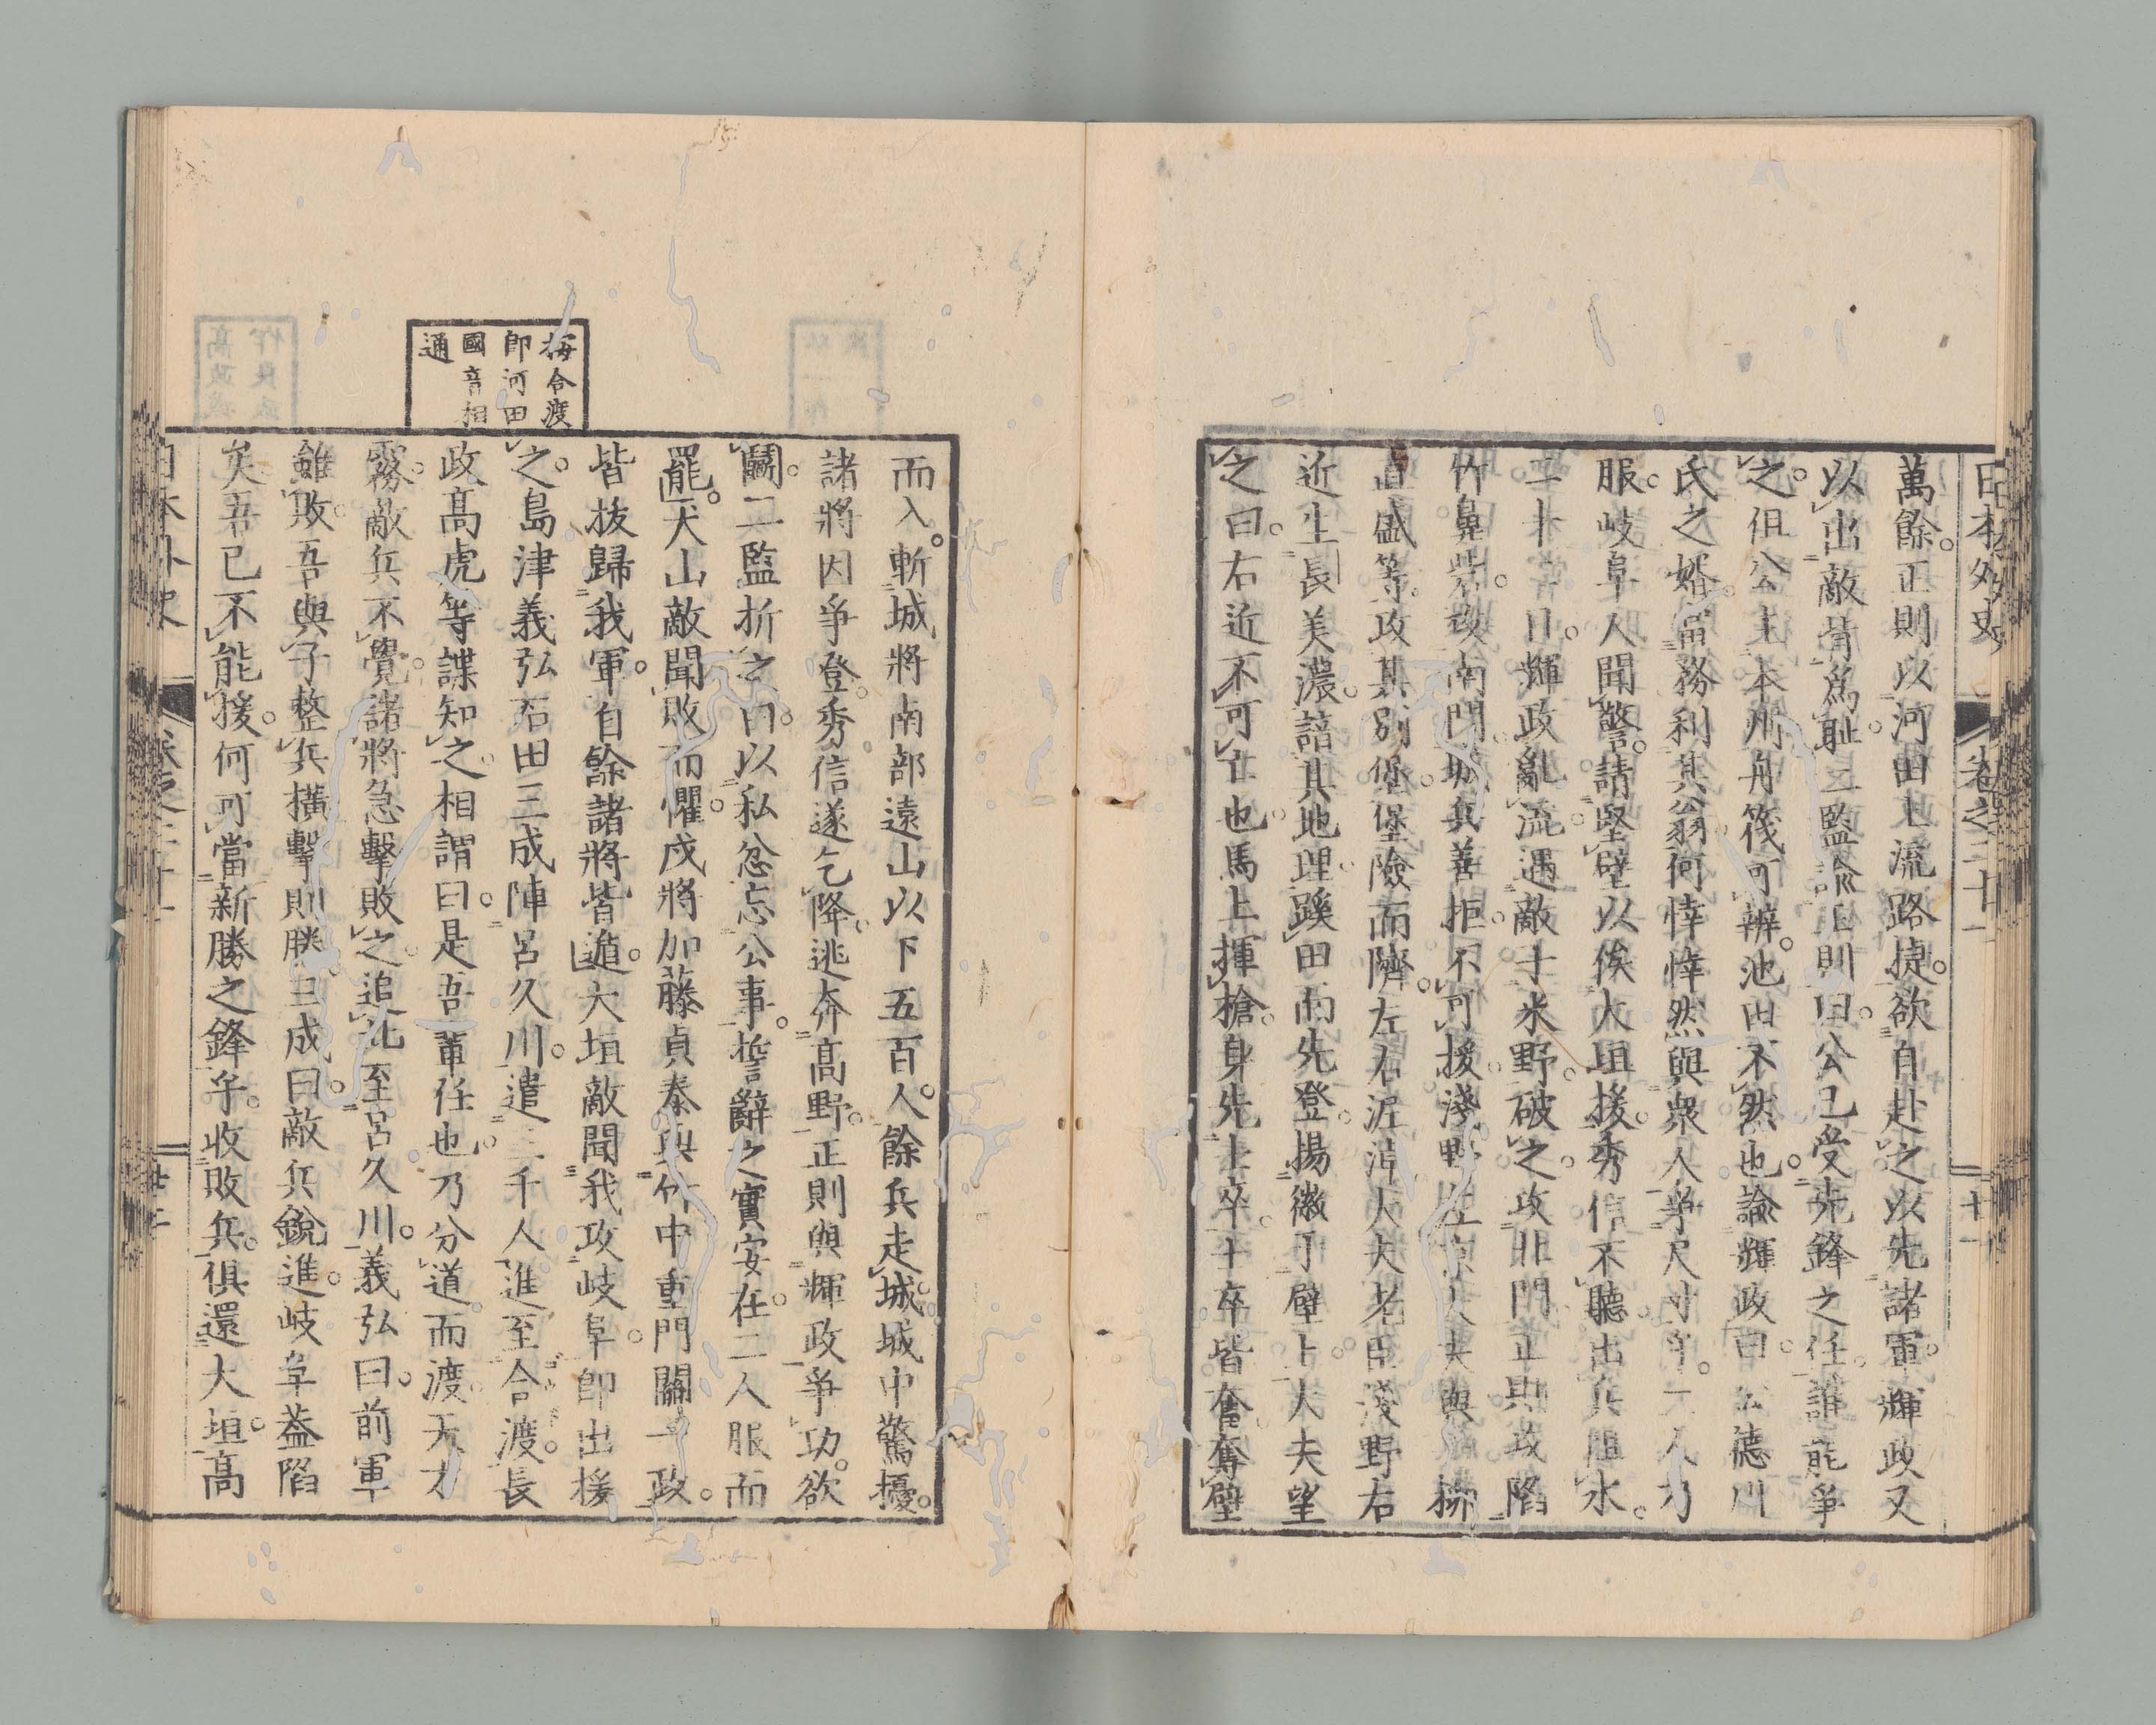 日本外史
卷之二十一
萬餘。正則以河田上流路捷。欲自赴之以先諸軍。輝政又
以出敵背爲恥。二監諭正則曰。公已受先鋒之任。誰能爭
之。但公主本州舟筏可辨。池田不然也。諭輝政曰。公德川
氏之婿。當務利其翁。何悻悻然與衆人爭尺寸乎。二人乃
服。岐阜人聞警。請堅壁以俟大垣援。秀信不聽。出兵阻水。
二十二日。輝政亂流遇敵于米野。破之。攻北門。正則攻陷
竹鼻砦。攻南門。城兵善拒。不可援。淺野左京大夫與
直盛等。攻其別堡。堡險而隮。左右泥淖。大夫老臣淺野右
近生長美濃。諳其地理。蹊田而先登。揚徽于壁上。大夫望
之曰。右近不可亡也。馬上揮槍。身先士卒。士卒皆奮。奪壁
而入。斬城將南部遠山以下五百人。餘兵走城。城中驚擾。
諸將因爭登。秀信遂乞降。逃奔高野。正則與輝政爭功。欲
鬭。二監折之曰。以私忿忘公事。誓辭之實安在。二人服而
罷。犬山敵聞敗而懼。戍將加藤貞泰與竹中重門關一政。
皆拔歸我軍。自餘諸將皆遁。大垣敵聞我攻岐阜。卽出援
之。島津義弘石田三成陣呂久川。遣三千人進至合渡。長
政高虎等諜知之。相謂曰。是吾軰任也。乃分道而渡。天大
霧。敵兵不覺。諸將急擊敗之。追北至呂久川。義弘曰。前軍
雖敗。吾與子整兵橫擊則勝。三成曰。敵兵銳進。岐阜葢陷
矣。吾已不能援。何可當新勝之鋒乎。收敗兵。俱還大垣。高
梅合渡
卽河田
國音相
通
日本外史
卷之二十一